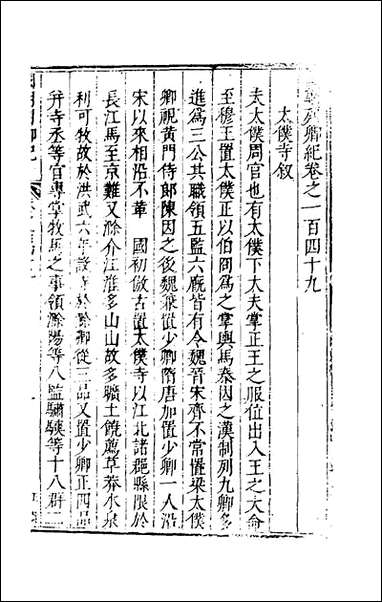 列卿紀卷之一百四十九
太僕寺叙
夫太僕周官也有太僕下大夫掌正王之服位出入王之大命
至穆王置太僕正以伯冏為之掌輿馬秦因之漢制列九卿多
進為三公其職領五監六廐皆有令魏晉宋齊不常置梁太僕
卿視黃門侍郎陳因之後魏兼置少卿隋唐加置少卿一人沿
宋以來相沿不革 國初倣古置太僕寺以江北諸郡縣限於
長江馬至京難又滁介江淮多山山故多曠土饒薦草莽水泉
利可牧故於洪武六年設寺於滁卿從三品又置少卿正四品
并寺丞等官專掌牧馬之事領滁陽等八監驌驦等十八群